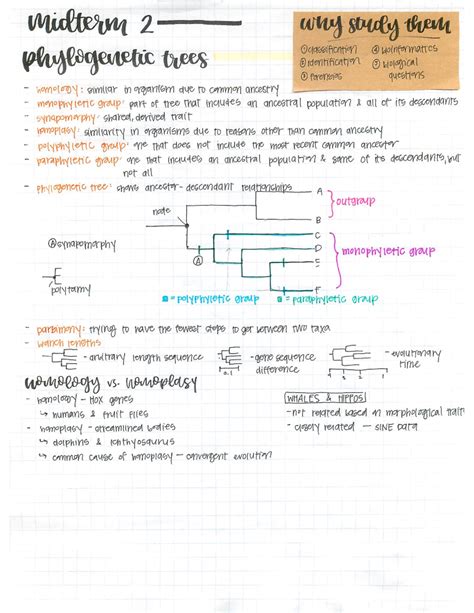 midterm 2
phylogenetic trees
why study them
①classification
②identification
③forensics
④bioinformatics
⑤biological
questions
- homology: similar in organism due to common ancestry
- monophyletic group: part of tree that includes an ancestral population & all of its descendants
- synapomorphy: shared, derived trait
- homoplasy: similarity in organisms due to reasons other than common ancestry
- polyphyletic group: one that does not include the most recent common ancestor
- paraphyletic group: one that includes an ancestral population & some of its descendants, but
not all
- phylogenetic tree: shows ancestor-descendant relationships
node
A
B
outgroup
C
D
E
F
monophyletic group
Ⓐ
Ⓐsynapomorphy
polytomy
= polyphyletic group
= paraphyletic group
- parsimony: trying to have the fewest steps to get between two taxa
- branch lengths
- arbitrary length sequence
- gene sequence
difference
0.1
- evolutionary
time
4 3 2 1
homology vs. homoplasy
- homology - HOX genes
↳ humans & fruit flies
- homoplasy - streamlined bodies
↳ dolphins & ichthyosaurus
↳ common cause of homoplasy - convergent evolution
WHALES & HIPPOS
- not related based on morphological trait
- closely related - SINE DATA